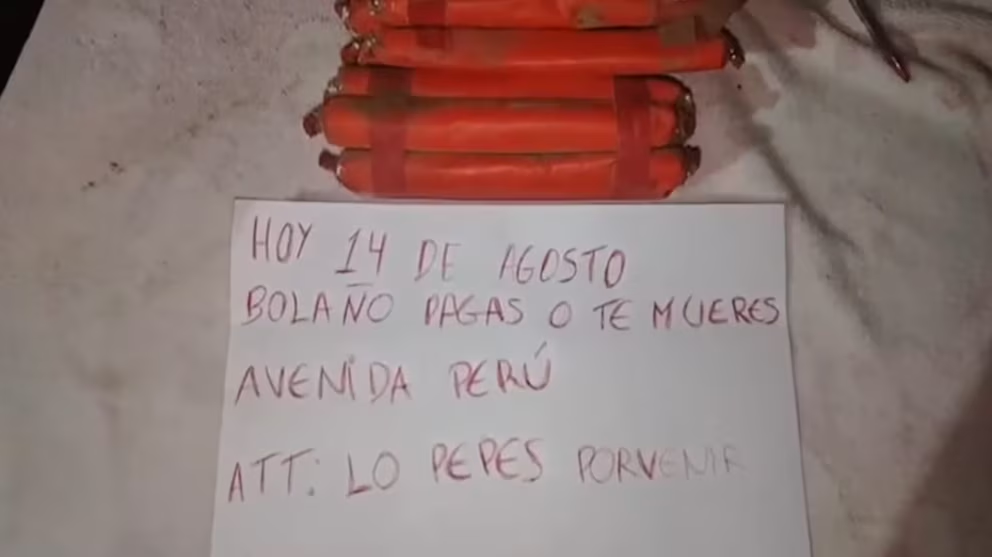 HOY 14 DE AGOSTO
BOLAÑO PAGAS O TE MUERES
AVENIDA PERÚ
ATT: LO PEPES PORVENIR